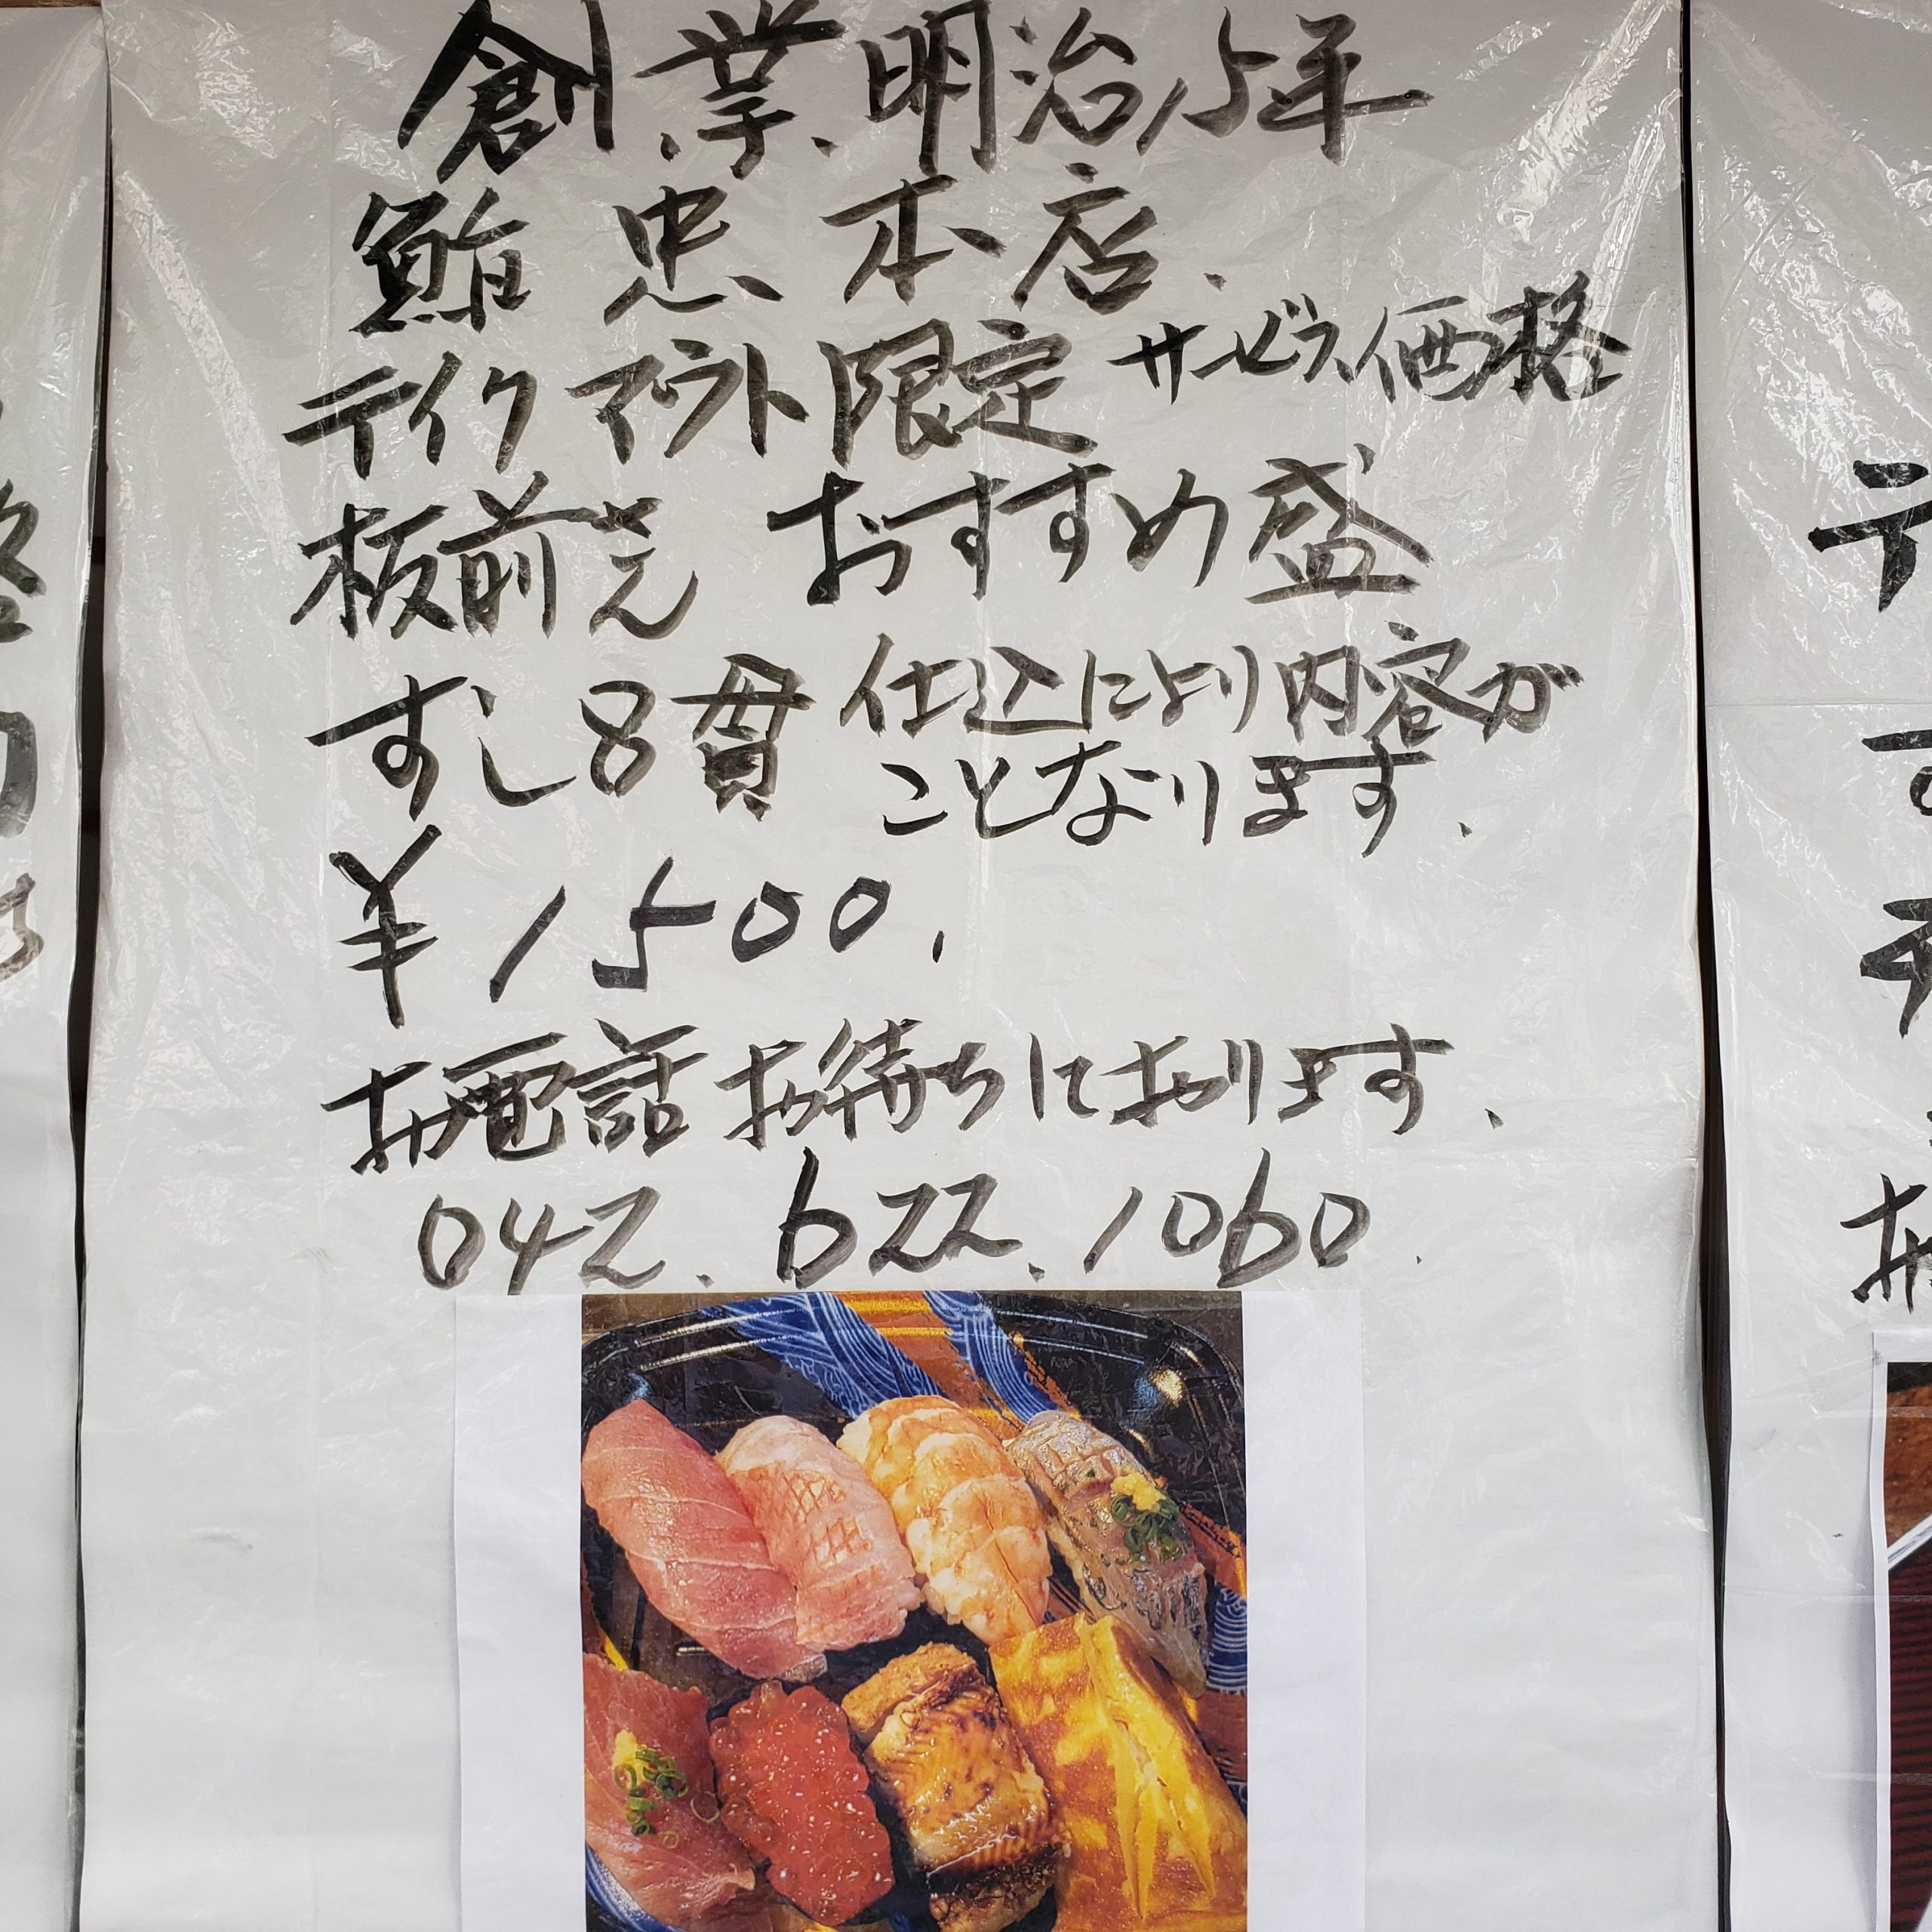 創業明治15年
鮨忠本店.
テイクアウト限定 サービス価格
板前さん おすすめ盛
すし8貫 仕込により内容が
ことなります.
¥1500.
お電話お待ちしております.
042.622.1060.